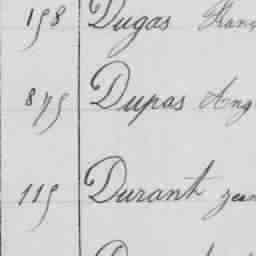 158 Dugas Fran
875 Dupas Ang
115 Durant jean